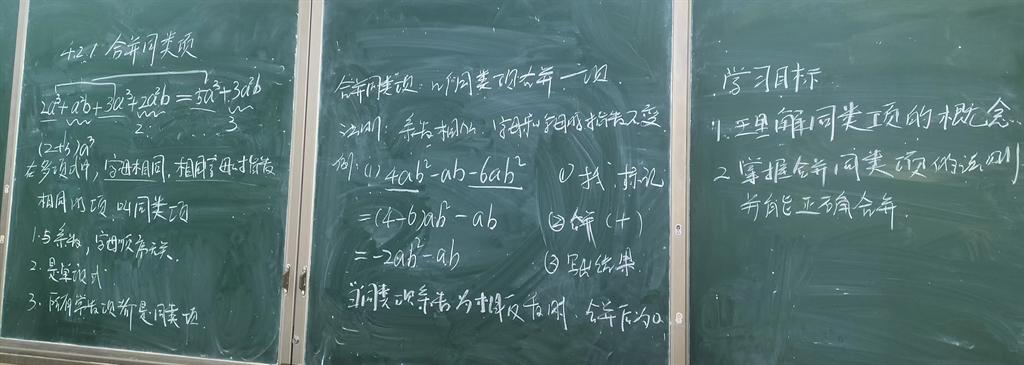 4.2.1 合并同类项
2a³+a²b+3a³+2a²b=5a³+3a²b
2
3
(2+3)a³
在多项式中，字母相同，相同字母的指数
相同的项叫同类项
1.与系数，字母顺序无关.
2.是单项式
3.所有常数项都是同类项.
合并同类项：几个同类项合并一项.
法则：系数相加，字母和字母的指数不变.
例：(1) 4ab²-ab-6ab²
① 找，标记
=(4-6)ab²-ab
② 合并（+）
=-2ab²-ab
③ 写出结果
当同类项系数为相反数时，合并后为0
学习目标
1.理解同类项的概念.
2.掌握合并同类项的法则
并能正确合并.